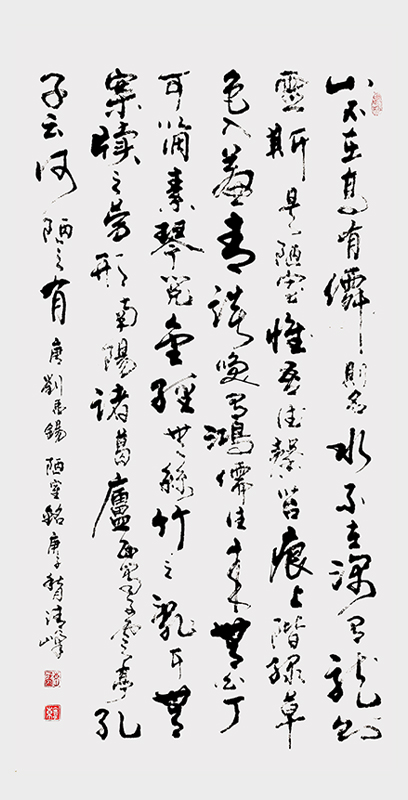 山不在高有僊則名水不在深有龍則
靈斯是陋室惟吾德馨苔痕上階綠草
色入簾青談笑有鴻儒往來無白丁
可以調素琴閱金經無絲竹之亂耳無
案牘之勞形南陽諸葛廬西蜀子雲亭孔
子云何陋之有 唐劉禹錫陋室銘庚子